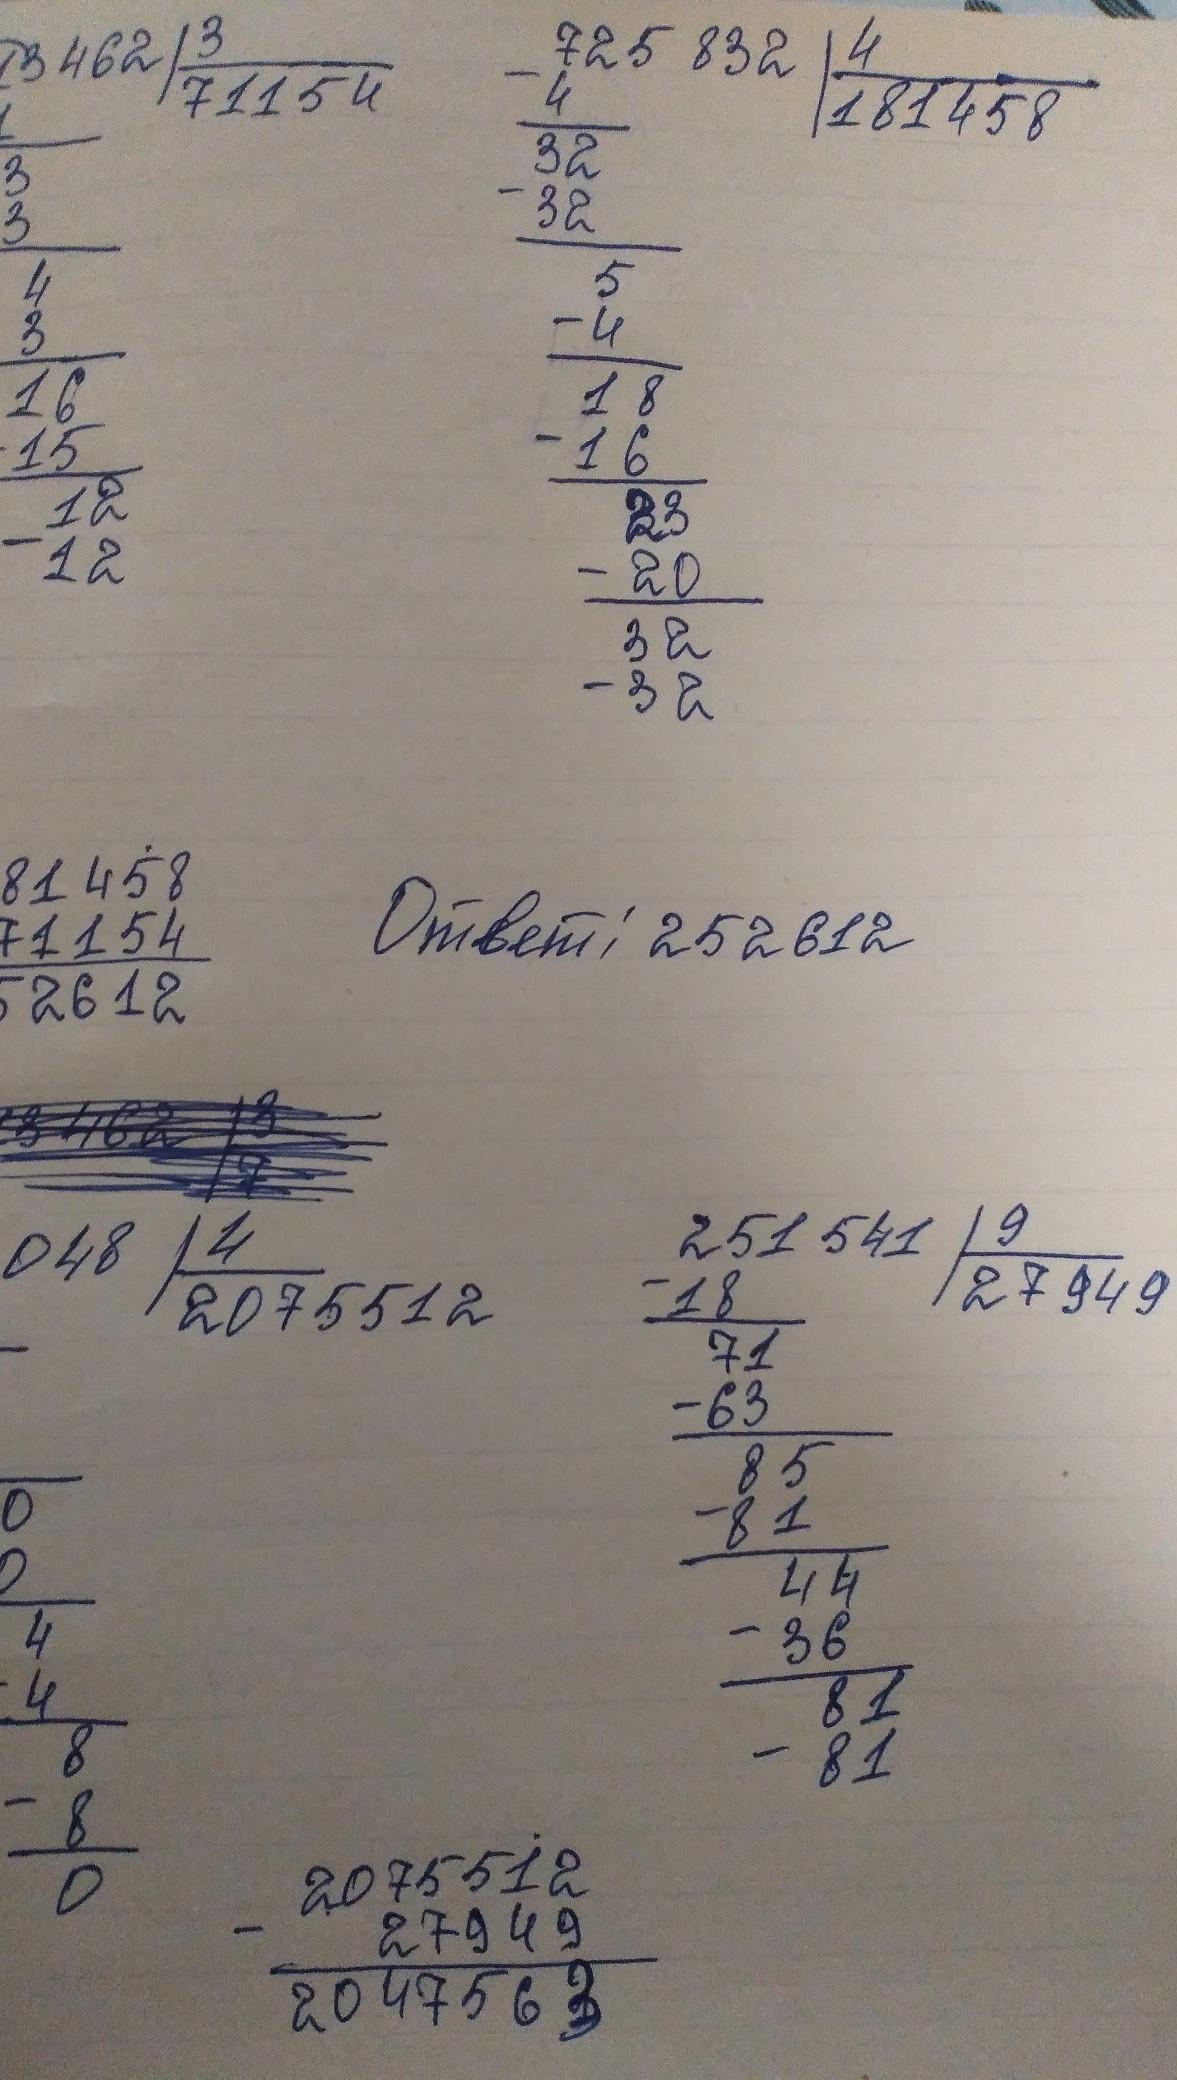 3462 3
71154
3
3
4
3
16
-15
12
- 12
725 832 4
- 4 181458
32
- 32
5
- 4
18
- 16
23
- 20
32
- 32
81458
71154
52612
Ответ: 252612
3462 3
7
048 4
2075512
0
0
4
-4
8
- 8
0
251 541 9
- 18 27949
71
- 63
85
- 81
44
- 36
81
- 81
2075512
- 27949
2047563